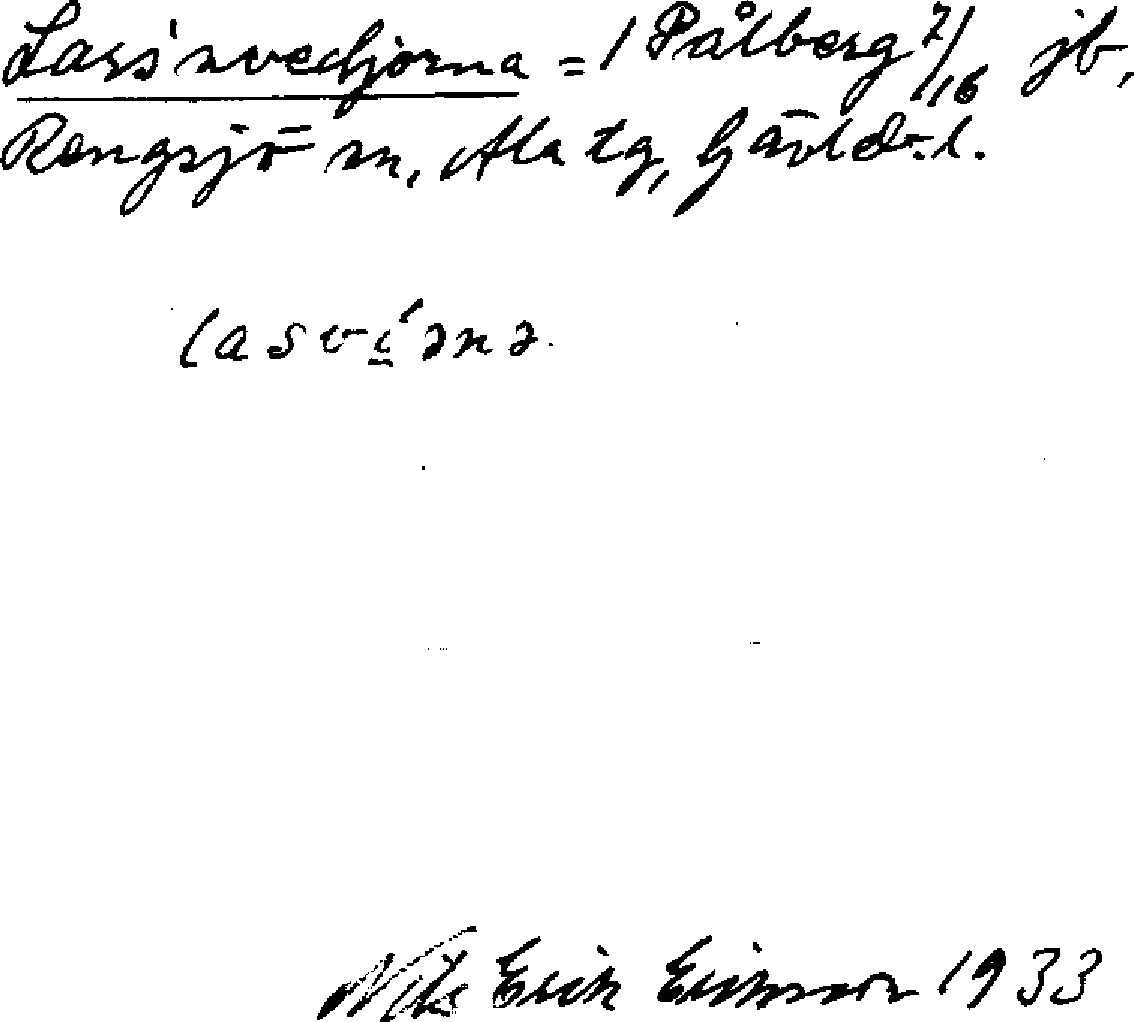 Lars'svedjorna = 1 Pålberg 7/16 jb,
Rengsjö sn, Ala tg, Gävleb. l.
lasvi̲´ənə.
Nils Erik Eriksson 1933